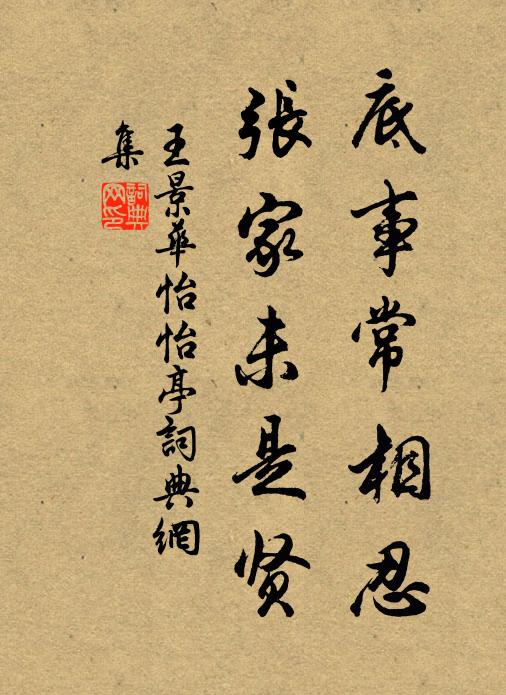 底事常相忍
張家未是贤
王景華怡怡亭詞典網
集
詞典网印